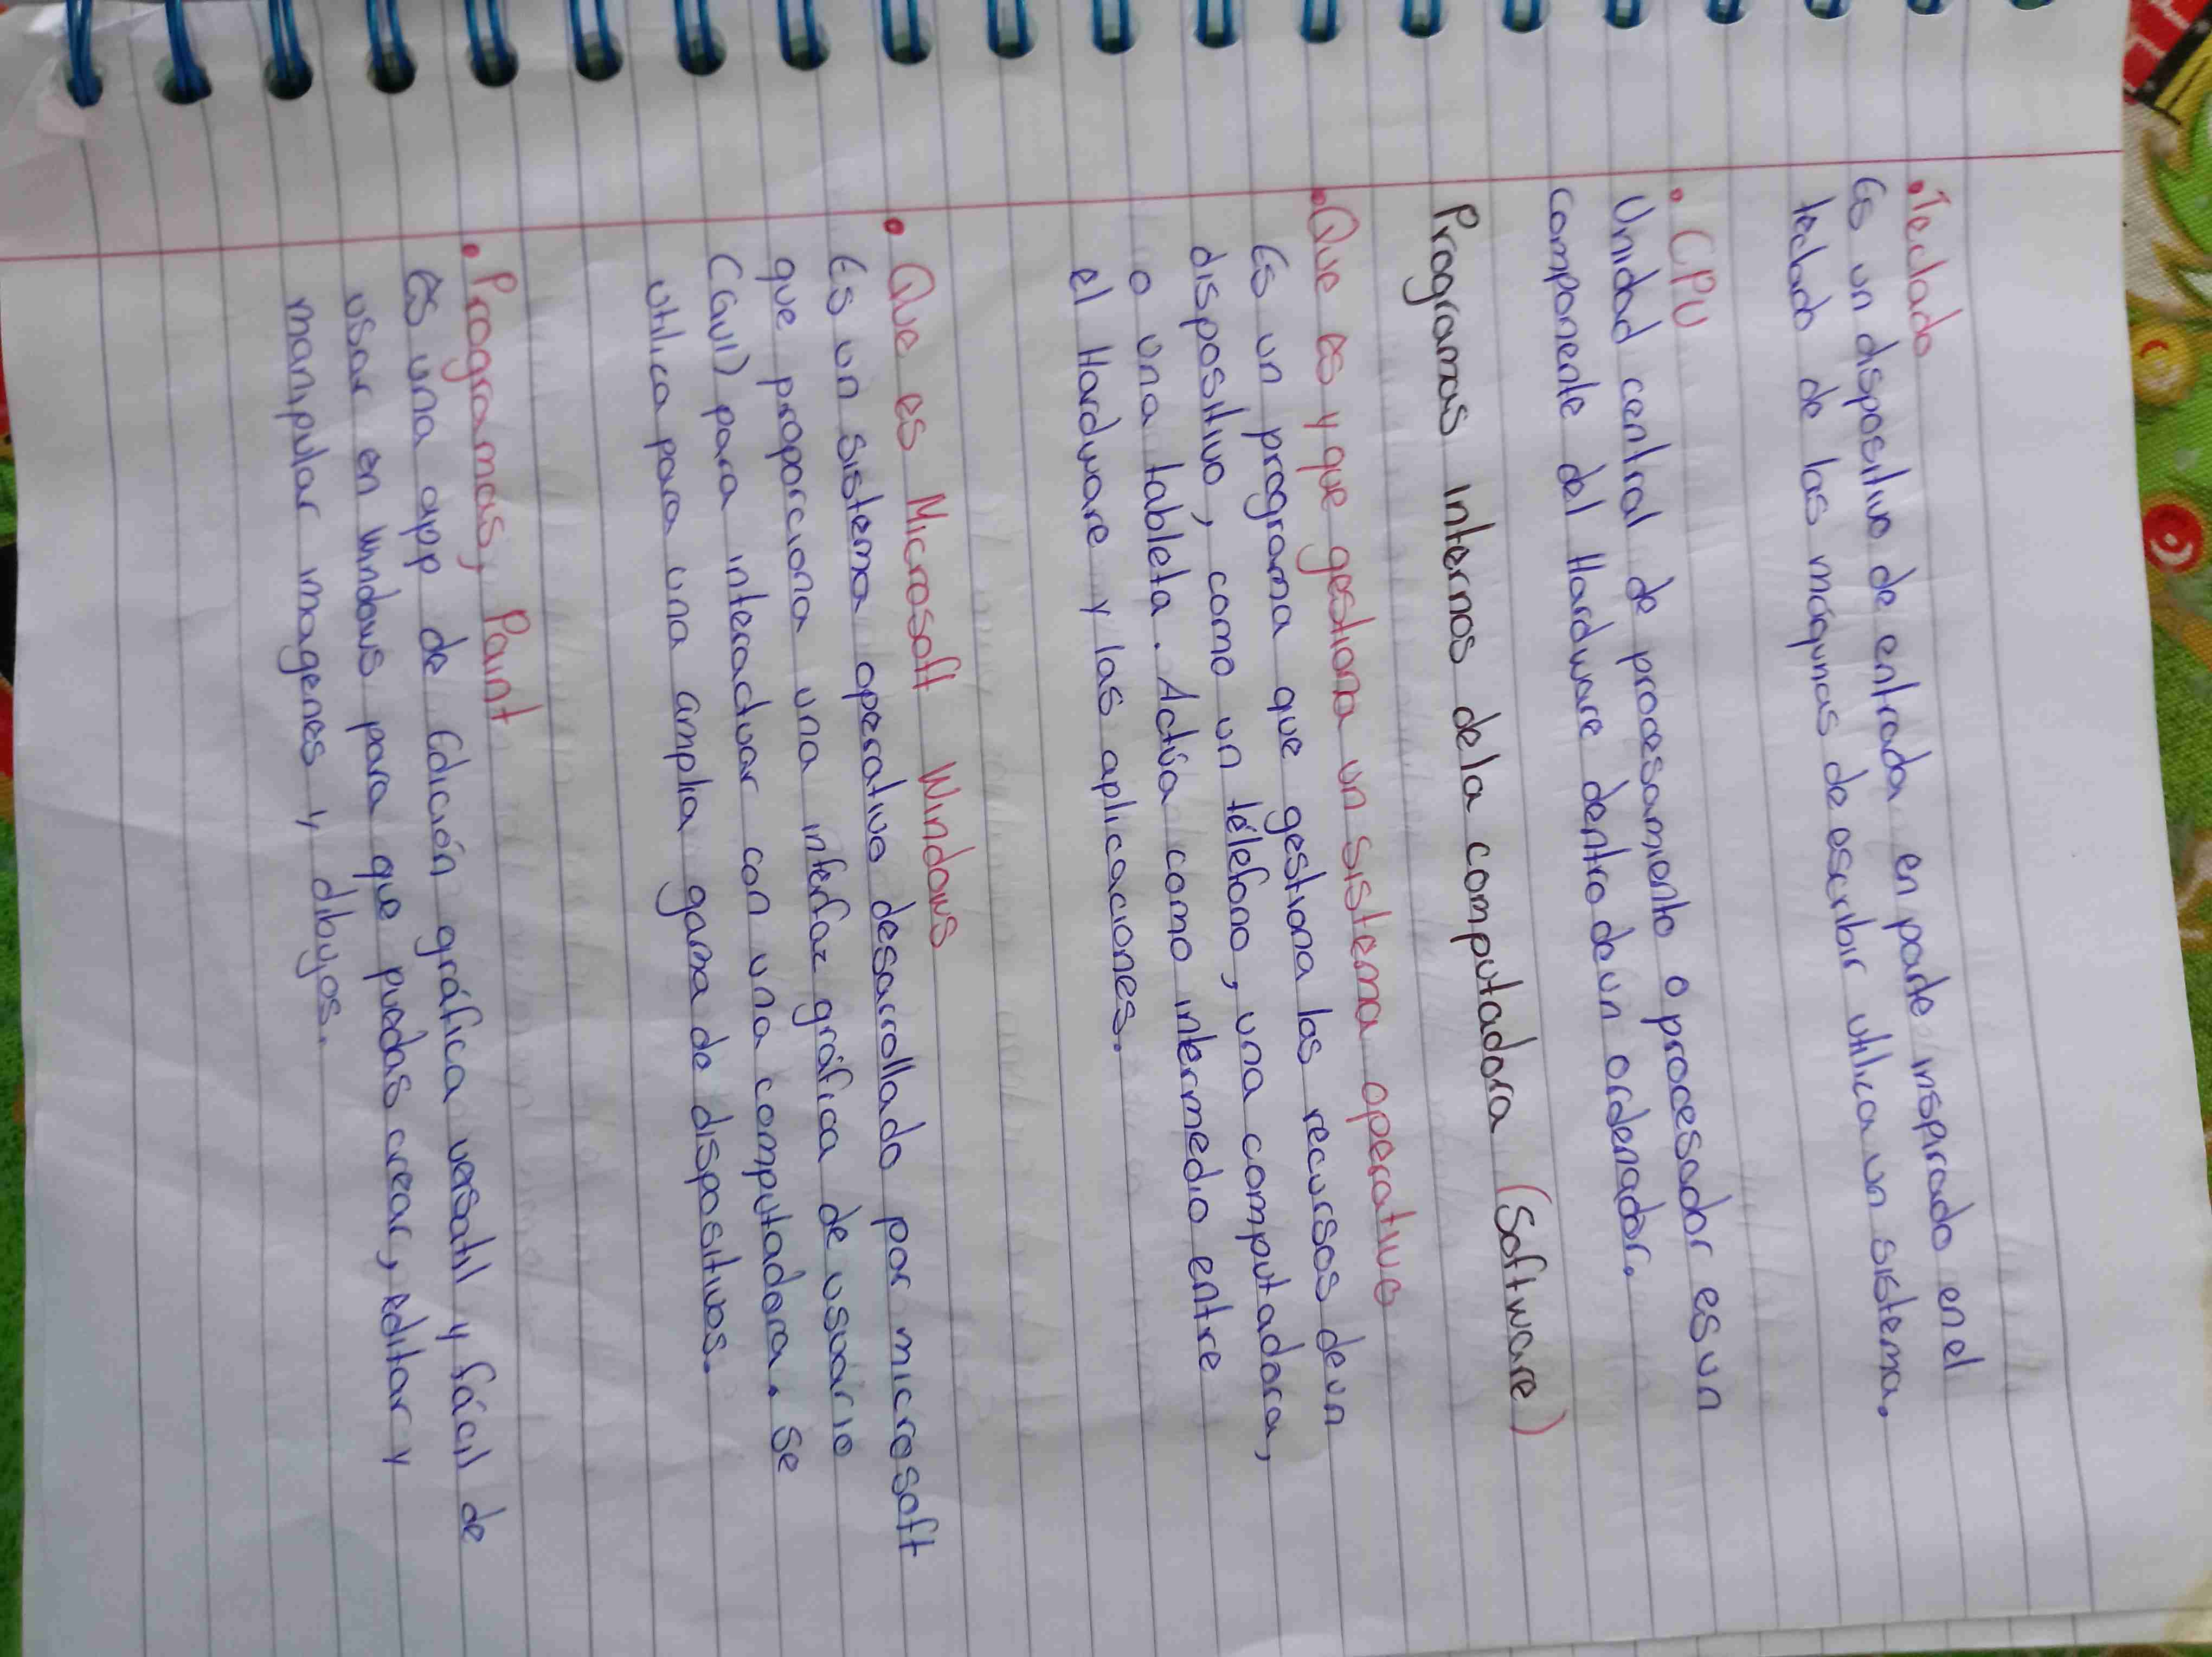 • Teclado
Es un dispositivo de entrada en parte inspirado en el
teclado de las máquinas de escribir utilica un sistema.
• CPU
Unidad central de procesamiento o procesador es un
componente del Hardware dentro de un ordenador.
Programas internos dela computadora (Software)
• Que es y que gestiona un sistema operativo
Es un programa que gestiona las recursos de un
dispositivo, como un télefono, una computadora,
o una tableta. Actúa como intermedio entre
el Hardware y las aplicaciones.
• Que es Microsoft Windows
Es un sistema operativo desarrollado por microsoft
que proporciona una interfaz gráfica de usuario
(GUI) para interactuar con una computadora. Se
utilica para una amplia gama de dispositivos.
• Programas, Paint
Es una app de Edición gráfica versatil y fácil de
usar en Windows para que puedas crear, editar y
manipular imagenes y dibujos.